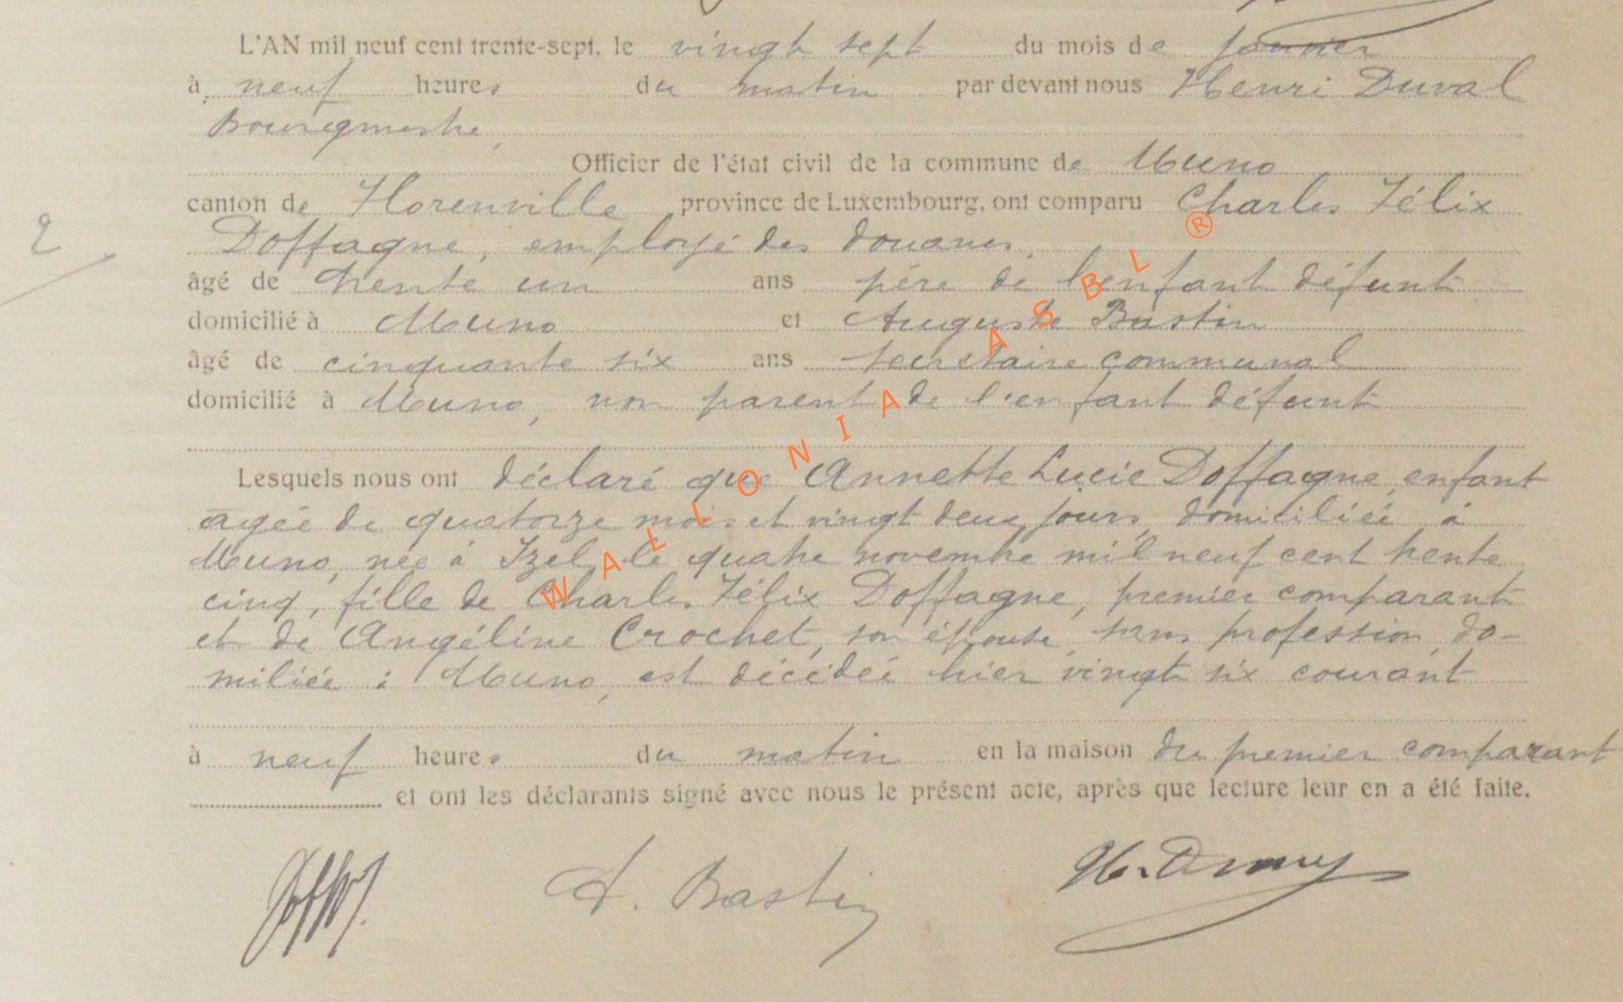 L'AN mil neuf cent trente-sept, le vingt sept du mois de janvier
à neuf heures du matin par devant nous Henri Duval
Bourgmestre,
Officier de l'état civil de la commune de Muno
canton de Florenville province de Luxembourg, ont comparu Charles Félix
2
Doffagne, employé des douanes,
âgé de trente un ans père de l'enfant défunt
domicilié à Muno et Auguste Bastin
âgé de cinquante six ans secrétaire communal
domicilié à Muno, non parent de l'enfant défunt
Lesquels nous ont déclaré que Annette Lucie Doffagne, enfant
agée de quatorze mois et vingt deux jours, domiciliée à
Muno, née à Izel, le quatre novembre mil neuf cent trente
cinq, fille de Charles Félix Doffagne, premier comparant
et de Angéline Crochet, son épouse, sans profession, do-
miliée à Muno, est décédée hier vingt six courant
à neuf heures du matin en la maison du premier comparant
et ont les déclarants signé avec nous le présent acte, après que lecture leur en a été faite.
A. Bastin
WALLONIA ASBL ®